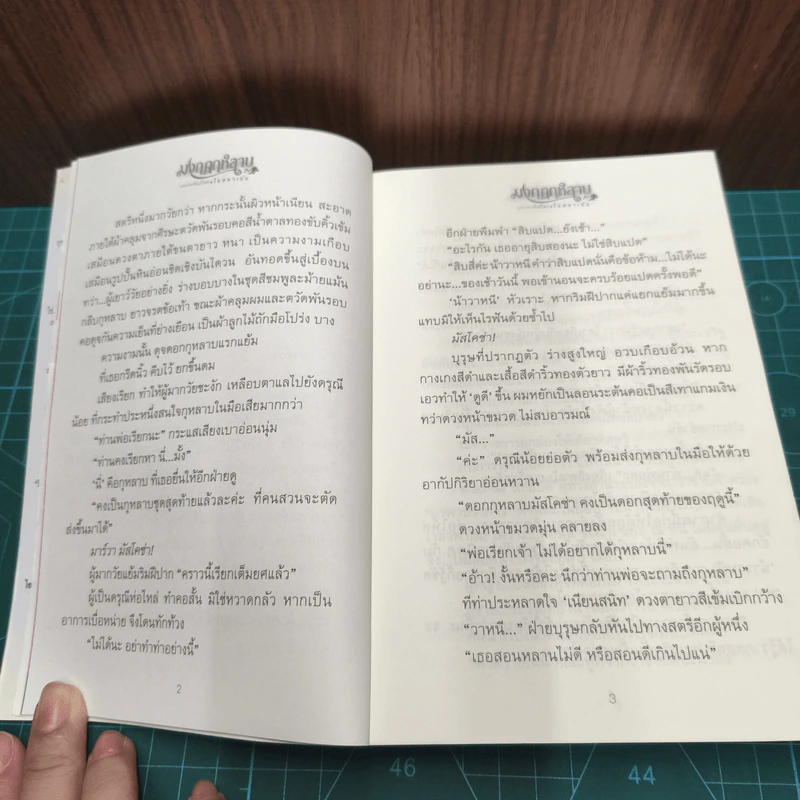 มงกุฎกุหลาบ
สตรีหนึ่งมากวัยกว่า หากกระนั้นผิวหน้าเนียน สะอาด
ภายใต้ผ้าคลุมจากศีรษะตวัดพันรอบคอสีน้ำตาลทองขับคิ้วเข้ม
เสมือนดวงตาภายใต้ขนตายาว หนา เป็นความงามเกือบ
เสมือนรูปปั้นหินอ่อนชดเชิงบันไดวน อันทอดขึ้นสู่เบื้องบน
ทว่า...ผู้เยาว์วัยอย่างยิ่ง ร่างบอบบางในชุดสีชมพูละม้ายแม้น
กลีบกุหลาบ ยาวจรดข้อเท้า ขณะผ้าคลุมผมและตวัดพันรอบ
คอดุจกันความเย็นที่ย่างเยือน เป็นผ้าลูกไม้ถักมือโปร่ง บาง
ความงามนั้น ดุจดอกกุหลาบแรกแย้ม
ที่เธอกรีดนิ้ว คีบไว้ ยกขึ้นดม
เสียงเรียก ทำให้ผู้มากวัยชะงัก เหลือบตาแลไปยังดรุณี
น้อย ที่กระทำประหนึ่งสนใจกุหลาบในมือเสียมากกว่า
“ท่านพ่อเรียกนะ” กระแสเสียงเบาอ่อนนุ่ม
“ท่านคงเรียกหา นี่...มั้ง”
‘นี่’ คือกุหลาบ ที่เธอยื่นให้อีกฝ่ายดู
“คงเป็นกุหลาบชุดสุดท้ายแล้วละค่ะ ที่คนสวนจะตัด
ส่งขึ้นมาได้”
มาร์วา มัสโคซ่า!
ผู้มากวัยแย้มริมฝีปาก “คราวนี้เรียกเต็มยศแล้ว”
ผู้เป็นดรุณีห่อไหล่ ทำคอสั้น มิใช่หวาดกลัว หากเป็น
อาการเบื่อหน่าย จึงโดนทักท้วง
“ไม่ได้นะ อย่าทำท่าอย่างนี้”
2
มงกุฎกุหลาบ
อีกฝ่ายพึมพำ “สิบแปด...ยังเช้า...”
“อะไรกัน เธออายุสิบสองนะ ไม่ใช่สิบแปด”
“สิบสี่ค่ะ น้าวาหนี คำว่าสิบแปดนั่นคือข้อห้าม...ไม่ได้นะ
อย่านะ...ของเช้าวันนี้ พอเข้านอนจะครบร้อยแปดครั้งพอดี”
‘น้าวาหนี’ หัวเราะ หากริมฝีปากแค่แยกแย้มมากขึ้น
แทบมิให้เห็นไรฟันด้วยซ้ำไป
มัสโคซ่า!
บุรุษที่ปรากฏตัว ร่างสูงใหญ่ อวบเกือบอ้วน หาก
กางเกงสีดำและเสื้อสีดำริ้วทองตัวยาว มีผ้าริ้วทองพันรัดรอบ
เอวทำให้ ‘ดูดี’ ขึ้น ผมหยักเป็นลอนระต้นคอเป็นสีเทาแกมเงิน
ทว่าดวงหน้าขมวด ไม่สบอารมณ์
“มัส...”
“ค่ะ” ดรุณีน้อยย่อตัว พร้อมส่งกุหลาบในมือให้ด้วย
อากัปกิริยาอ่อนหวาน
“ดอกกุหลาบมัสโคซ่า คงเป็นดอกสุดท้ายของฤดูนี้”
ดวงหน้าขมวดมุ่น คลายลง
“พ่อเรียกเจ้า ไม่ได้อยากได้กุหลาบนี่”
“อ้าว! งั้นหรือคะ นึกว่าท่านพ่อจะถามถึงกุหลาบ”
ทีท่าประหลาดใจ ‘เนียนสนิท’ ดวงตายาวสีเข้มเบิกกว้าง
“วาหนี...” ฝ่ายบุรุษกลับหันไปทางสตรีอีกผู้หนึ่ง
“เธอสอนหลานไม่ดี หรือสอนดีเกินไปแน่”
3
46
44
29